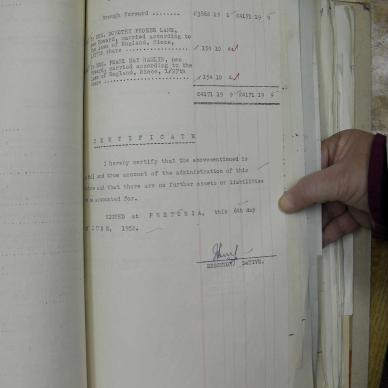 Brough Forward ........ £3862 19 1 £4171 19 9
MRS. DOROTHY PHOEBE LANE,
Howard, married according to
laws of England, Niece,
share .............. 154 10 4
MRS. PEARL MAY HAMLIN, nee
Howard, married according to the
laws of England, Niece, 1/27th
.............. 154 10 4
£4171 19 9 £4171 19 9
CERTIFICATE
I hereby certify that the abovementioned is
and true account of the administration of this
and that there are no further assets or liabilities
accounted for.
SIGNED at PRETORIA, this 6th day
JUNE, 1952.
EXECUTOR DATIVE.